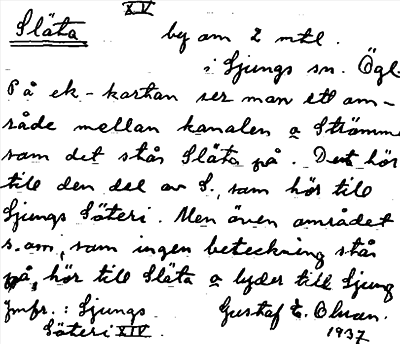 XV
Släta by om 2 mtl.
i Ljungs sn. Ögl.
På ek-kartan ser man ett om-
råde mellan kanalen o Strömme
som det står Släta på. Det hör
till den del av S., som hör till
Ljungs Säteri. Men även området
s. om, som ingen beteckning står
på, hör till Släta o lyder till Ljung
Jmfr.: Ljungs Gustaf E. Olson.
Säteri XIV. 1937